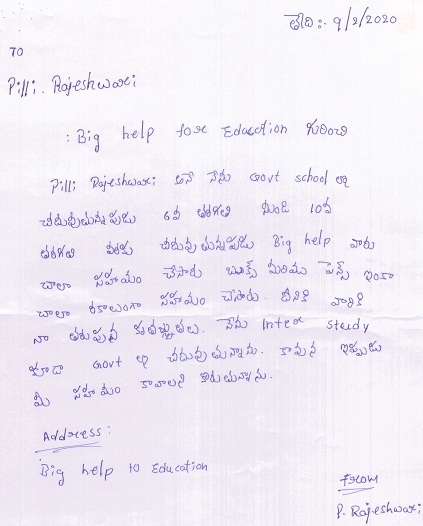 తేది:- 9/2/2020
To
Pilli. Rajeshwari
: Big help for Education గురించి
Pilli Rajeshwari అనే నేను Govt school లో
చదువుతున్నప్పుడు 6వ తరగతి నుండి 10వ
తరగతి వరకు చదువుతున్నప్పుడు Big help వారు
చాలా సహాయం చేసారు బుక్స్ మరియు పెన్స్ ఇంకా
చాలా రకాలుగా సహాయం చేసారు. దీనికి వారికి
నా తరుపున కృతజ్ఞతలు. నేను Inter study
కూడా Govt లో చదువుతున్నాను. కావున ఇప్పుడు
మీ సహాయం కావాలని కోరుతున్నాను.
Address:
Big help to Education
From
P. Rajeshwari